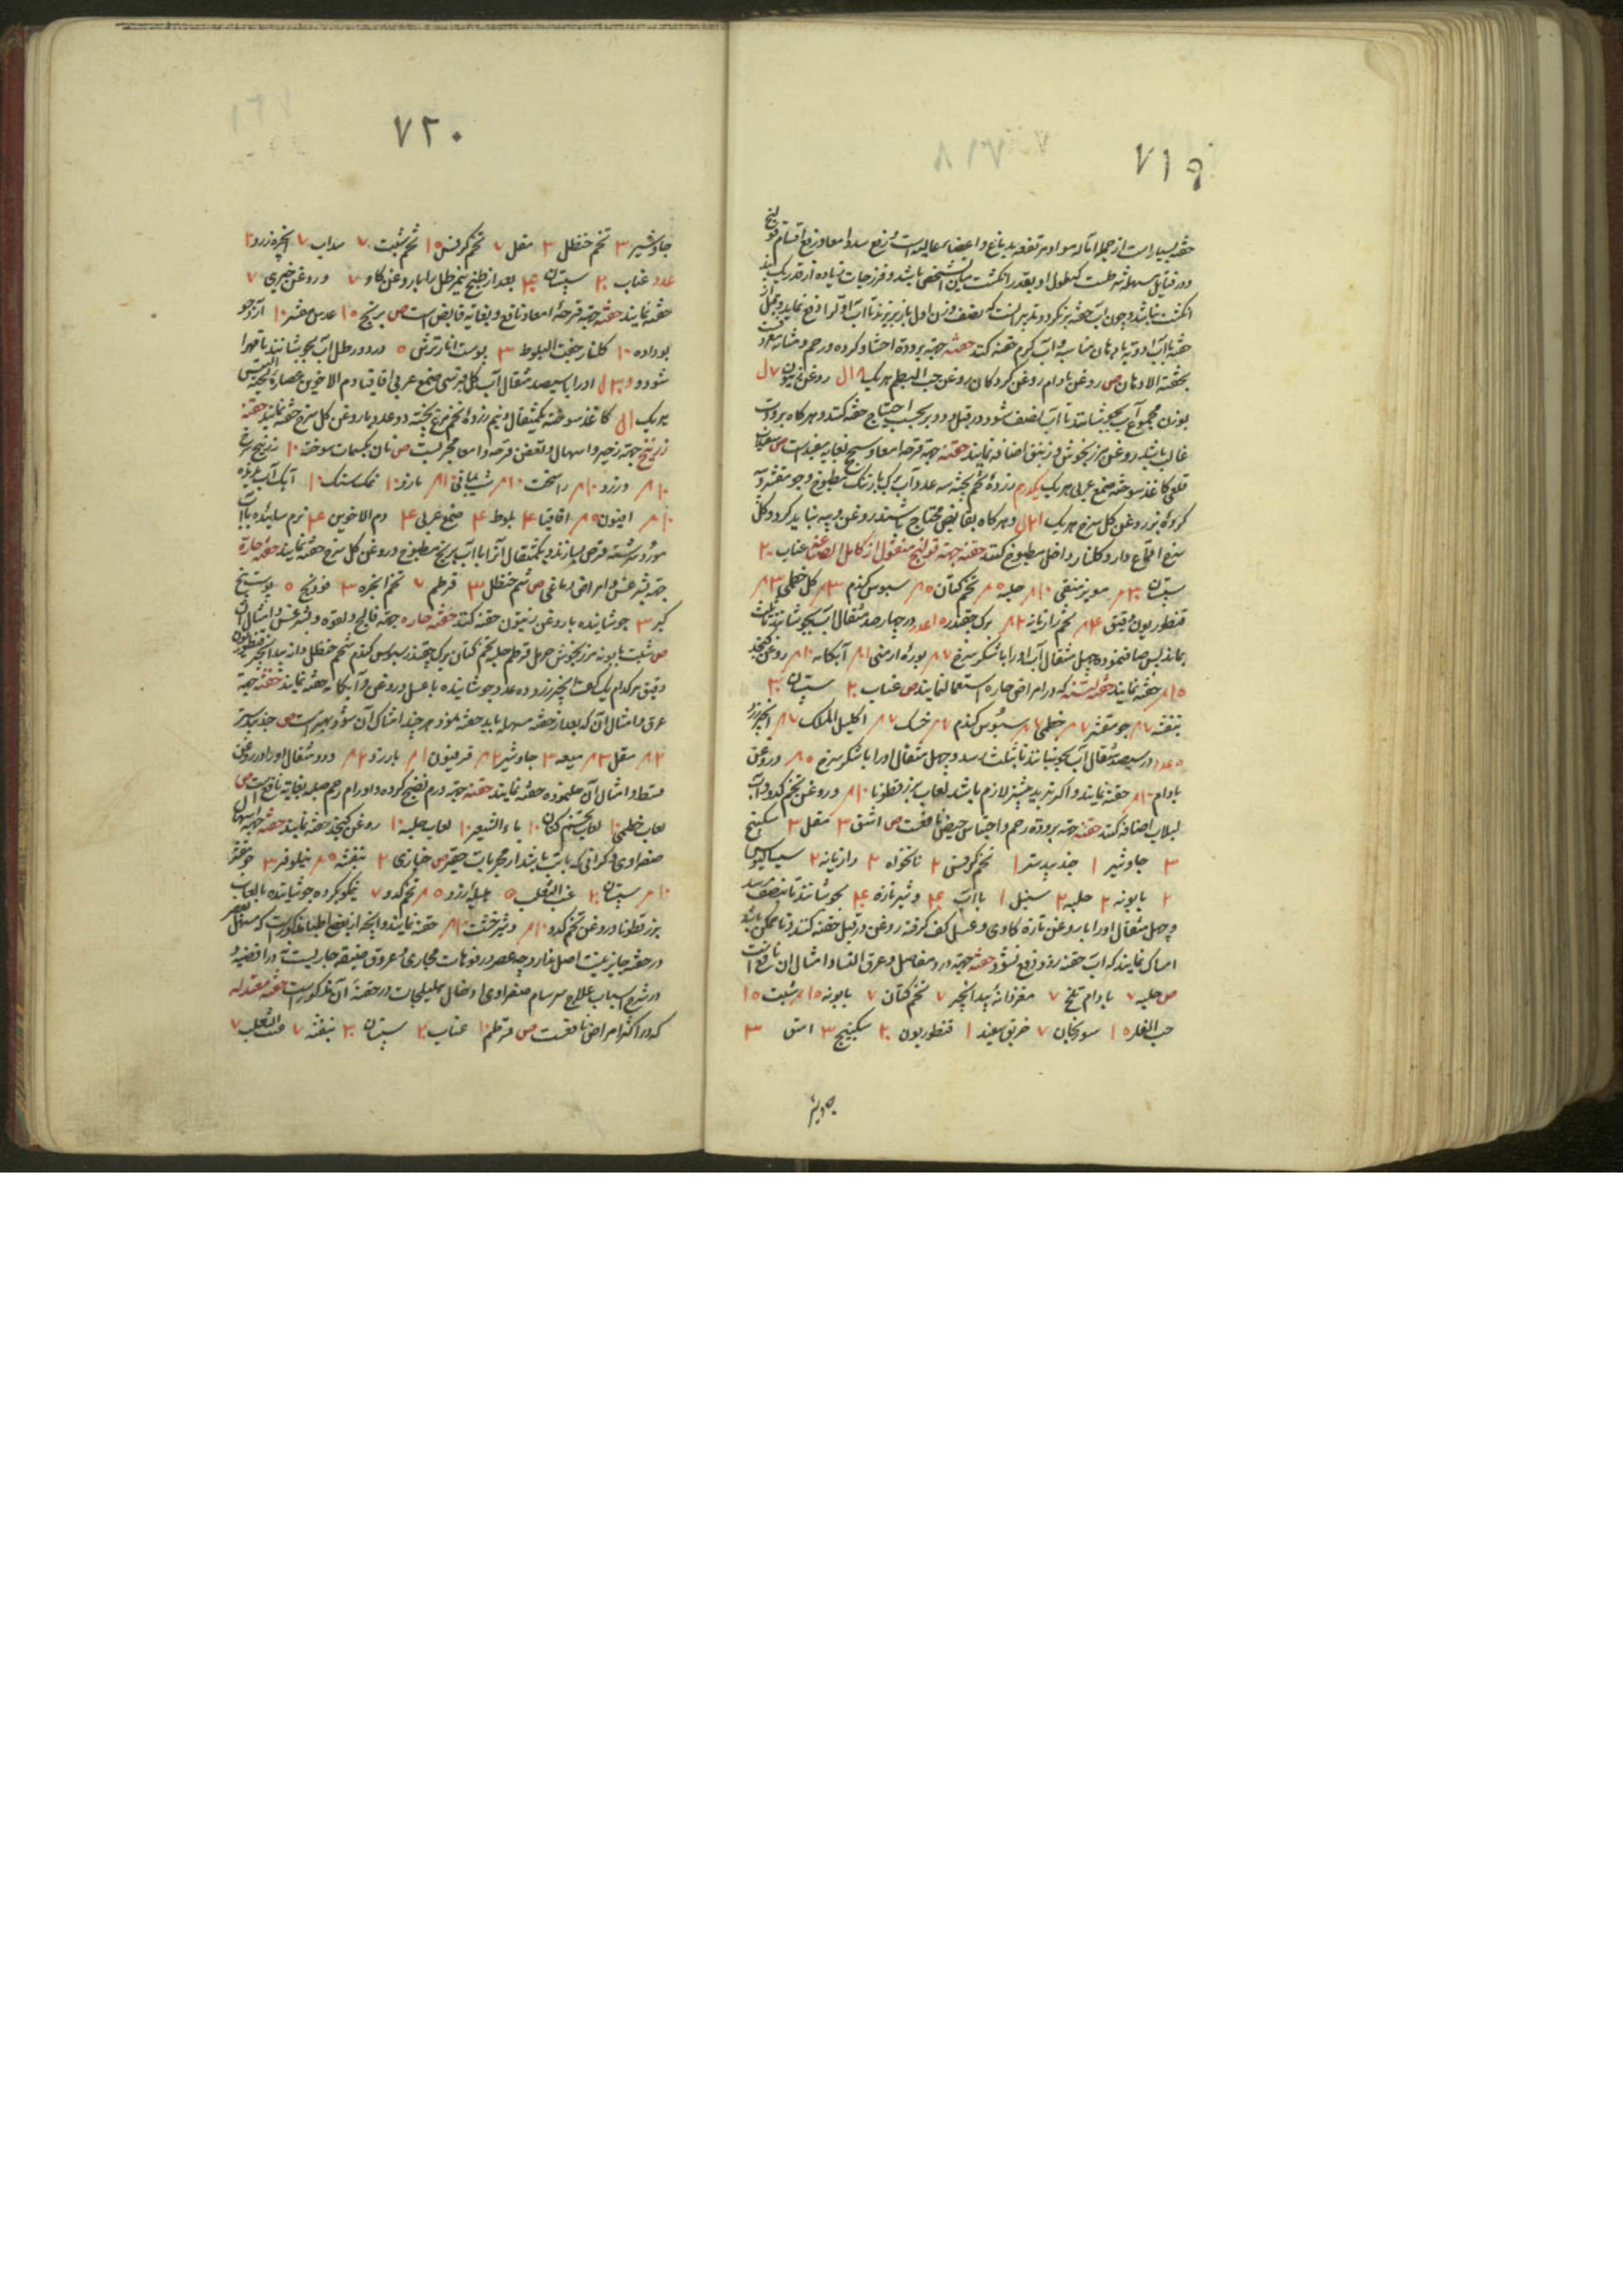 ٧١٩
حقنه بسیار است از جمله اماله مواد مرتفعه بدماغ و اعضاء عالیه است و رفع سدد امعا و رفع اقسام قولنج
و در فتایل مسهله شرط است که طول او بقدر انگشت شخص باشد و فرزجات زیاده از قدر یک بند
انگشت نباشد و چون آب حقنه برنگردد تدبیر آنست که نصف وزن اول باز بریزند تا آب اول را دفع نماید
حقنه با آب ادویه یا دهان مناسبه و آب گرم حقنه کنند حقنه جهة برودة احشا و گرده و رحم و مثانه
بحقنة الادهان ص روغن بادام روغن گردکان روغن حب البطم هر یک ۸ ال روغن زیتون ٧ ل
بوزن مجموع آب بجوشانند تا آب نصف شود و در قبل و دبر بحسب احتیاج حقنه کنند و هر گاه برودت
غالب باشد روغن مرزنجوش و زنبق اضافه نمایند حقنه جهة قرحه امعا و سحج بغایت مفید است ص سفیداب
قلعی کاغذ سوخته صمغ عربی هر یک یکدرم زرده تخم پخته سه عدد و آب که با زنک مطبوخ و جو مقشر و پیه
گرده بز روغن گل سرخ هر یک ال و هر گاه بقابض محتاج باشند روغن و پیه نباید کرد و گل
سرخ اقماع دار و گلنار داخل مطبوخ کنند حقنه جهة قولنج منقول از کامل الصناعه عناب ۲۰
سپستان ۳۰ م مویز منقی ۱۰ م حلبه ۵ م تخم کتان ۵ م سبوس گندم ۳ م گل خطمی ۳ م
قنطوریون دقیق ۴ م تخم رازیانه ۲ م برگ چقندر ۱۵ عدد در چهار صد مثقال آب بجوشانند تا ثلث
بماند پس صاف نموده چهل مثقال آب او را با شکر سرخ ٧ م بوره ارمنی ۱ م آبکامه ۱۰ م روغن کنجد
۱۵ م حقنه نمایند حقنه لینه که در امراض حاره استعمال نمایند ص عناب ۲۰ سپستان ۳۰
بنفشه ٧ م جو مقشر ٧ م خطمی ٧ م سبوس گندم ٧ م خسک ٧ م اکلیل الملک ٧ م انجیر زرد
۵ عدد در سیصد مثقال آب بجوشانند تا بثلث رسد و چهل مثقال او را با شکر سرخ ۵ م و روغن
بادام ۱۰ م حقنه نمایند و اگر تبرید بیشتر لازم باشد لعاب بزرقطونا ۱۰ م و روغن تخم کدو و آب
لبلاب اضافه کنند حقنه جهة برودة رحم و احتباس حیض نافعست ص اشق ۳ مقل ۳ سکبینج
۳ جاوشیر ۱ جندبیدستر ۱ تخم کرفس ۲ نانخواه ۲ رازیانه ۲ سیسالیوس
۲ بابونه ۲ حلبه ۲ سنبل ۱ با آب و شیر تازه بجوشانند تا بنصف رسد
و چهل مثقال او را با روغن تازه گاوی و عسل کف گرفته روغن در قبل حقنه کنند و تا ممکن باشد
امساک نمایند که آب حقنه زود دفع نشود حقنه جهة درد مفاصل و عرق النسا و امثال آن نافع است
ص حلبه ٧ بادام تلخ ٧ مغز دانه بیدانجیر ٧ تخم کتان ٧ بابونه ۱۵ م شبت ۱۵
حب الغار ۱۵ سورنجان ٧ خربق سفید ۱ قنطوریون ۲۰ سکبینج ۳ اشق ۳
جاوشیر
٧٢٠
جاوشیر ۳ تخم حنظل ۳ مقل ٧ تخم کرفس ۱۵ تخم شبت ٧ سداب ٧ انجیر زرد ۲
عدد عناب ۲۰ سپستان بعد از طبخ نیم رطل را با روغن گاو ٧ و روغن خیری ٧
حقنه نمایند حقنه جهة قرحه امعا نافع و بغایة قابض است ص برنج ۱۵ عدس مقشر ۱۰ آرد جو
بوداده ۱۰ گلنار جفت البلوط ۳ پوست انار ترش ۵ در دو رطل آب بجوشانند تا مهرا
شود و او را با سیصد مثقال آب گل صمغ عربی اقاقیا دم الاخوین عصاره لحیة التیس
هر یک ال کاغذ سوخته یکمثقال و نیم زرده تخم مرغ پخته دو عدد با روغن گل سرخ حقنه نمایند حقنه
زرنیخ جهة زحیر و اسهال و تعفن قرحه و امعا مجربست ص نان کعک سوخته ۱۰ زرنیخ سرخ
۱۰ م و زرد ۱۰ م راسخت ۱۰ م شب یمانی ۱ م مازو ۱۰ نمک سنک ۱۰ آهک آب ندیده
۱۰ م افیون ۵ م اقاقیا ۴ بلوط ۴ صمغ عربی ۴ دم الاخوین ۴ نرم سائیده بآب
مورد سرشته قرص بسازند و یکمثقال آنرا با آب برنج مطبوخ و روغن گل سرخ حقنه نمایند حقنه حاره
جهة لیثرغس و امراض دماغی ص شحم حنظل ۳ قرطم ٧ تخم انجره ۳ فودنج ۵ پوست بیخ
کبر ۳ جوشانیده با روغن زیتون حقنه کنند حقنه حاره جهة فالج و لقوه و لیثرغس و امثال آن
ص شبت بابونه مرزنجوش حرمل قرطم حلبه تخم کتان برگ چقندر سبوس گندم شحم حنظل دانه بیدانجیر قنطوریون
دقیق هر کدام یک کف انجیر زرد ده عدد جوشانیده با عسل و روغن و آبکامه حقنه نمایند حقنه جهة
عرق و امثال آن که بعد از حقنه مسهله باید حقنه نمود هر چند امساک آن شود بهتر است ص جندبیدستر
۲ م مقل ۳ م میعه ۳ جاوشیر ۲ م فرفیون ۱ م بارزد ۲ م و دو مثقال او را در روغن
قسط و امثال آن حل نموده حقنه نمایند حقنه جهة ورم نضیج گرده و اورام رحم صلبه بغایة نافعست ص
لعاب خطمی ۱۰ لعاب تخم کتان ۱۰ ماء الشعیر ۱۰ لعاب حلبه ۱۰ روغن کنجد حقنه نمایند حقنه جهة اسهال
صفراوی و کرانی که با تب باشد از مجربات حقیر ص خبازی ۲ بنفشه ۵ م نیلوفر ۳ جو مقشر
۱۰ م سپستان ۲۰ عنب الثعلب ۵ هلیله زرد ۵ م تخم کدو ٧ نیمکوب کرده جوشانیده با لعاب
بزرقطونا و روغن تخم کدو ۱۰ م و شیرخشت ۱۰ م حقنه نمایند و آنچه از بعضی اطبا مذکور است که مسهل بعصر
در حقنه جایز نیست اصل ندارد چه عصر در فوهات مجاری و عروق ضیقه جاریست نه در اقضیه و
در شرح اسباب علاج سرسام صفراوی ادخال هلیلجات در حقنه آن مذکور است حقنه معتدله
که در اکثر امراض نافعست ص قرطم ۱۰ عناب ۲۰ سپستان ۲۰ بنفشه ٧ عنب الثعلب ٧